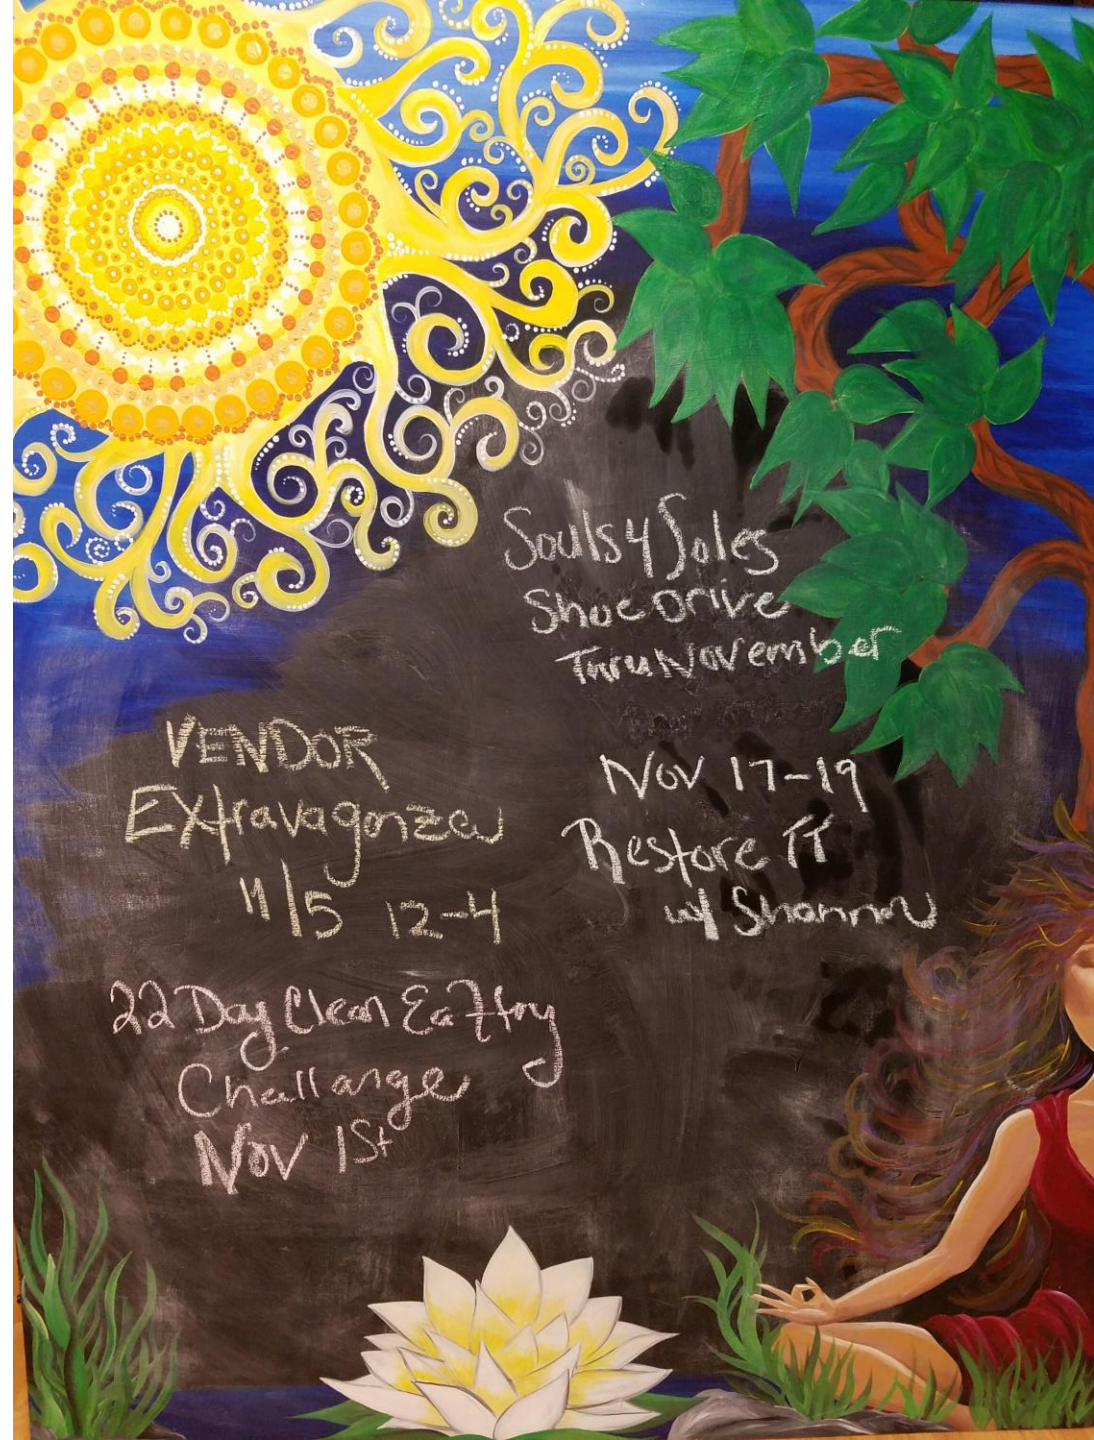 Souls 4 Soles
Shoe Drive
Thru November
VENDOR
Extravaganza
11/5 12-4
Nov 17-19
Restore TT
w/ Shannon
22 Day Clean Eating
Challange
Nov 1st